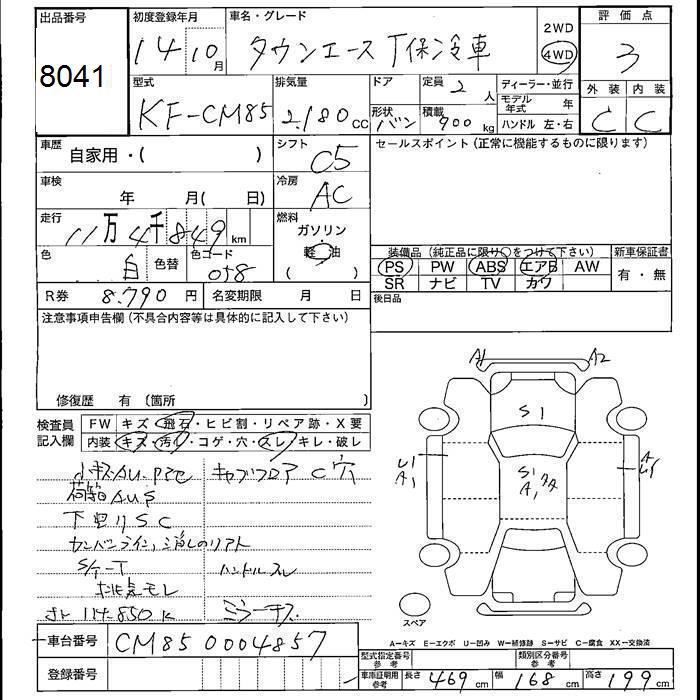 出品番号
8041
初度登録年月
14 10月
車名・グレード
タウンエース T保冷車
2WD
4WD
評価点
3
外装 内装
C C
型式
KF-CM85
排気量
2,180 cc
ドア
形状
バン
定員 2 人
積載 900 kg
ディーラー・並行
モデル年式 年
ハンドル 左・右
車歴
自家用・( )
シフト
C5
セールスポイント (正常に機能するものに限ります)
車検
年 月( 日)
冷房
AC
走行
11万4千849 km
燃料
ガソリン
軽油
( )
色
白
色替
色コード
058
装備品 (純正品に限り○をつけて下さい)
新車保証書
PS PW ABS エアB AW
SR ナビ TV カワ
有・無
R券 8,790 円
名変期限 月 日
後日品
注意事項申告欄 (不具合内容等は具体的に記入して下さい)
修復歴 有 〔箇所 〕
検査員記入欄
FW キズ・飛石・ヒビ割・リペア跡・X要
内装 キズ・汚れ・コゲ・穴・スレ・キレ・破レ
小キズAU・P2セ
キャブフロア C穴
荷箱AUS
下回りSC
カンバンライン、ミ消しのリアト
S/ケーT
ハンドルスレ
排気モレ
ホト 114,850K
ミラーキズ
A1 A2
S1
U1
A1
S1
A1
A
U1
スペア
A=キズ E=エクボ U=凹み W=補修跡 S=サビ C=腐食 XX=交換済
車台番号
CM85 0004857
登録番号
型式指定番号 参考
類別区分番号 参考
車庫証明用 参考
長さ 469 cm 幅 168 cm 高さ 199 cm